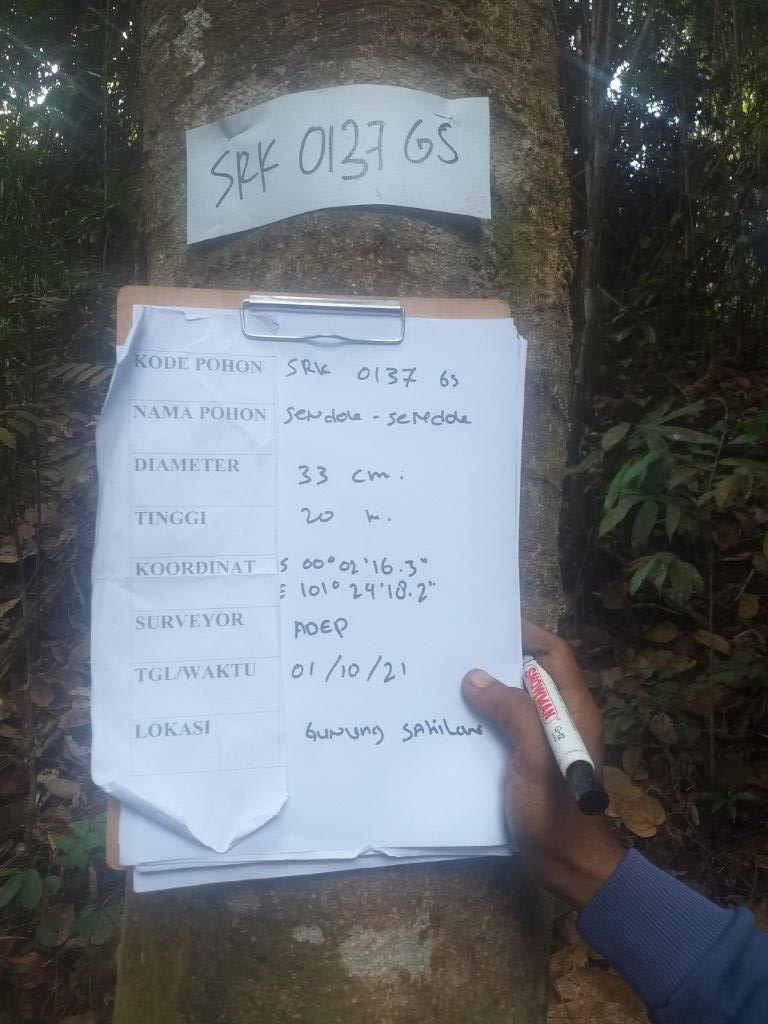 SRK 0137 GS
KODE POHON SRK 0137 GS
NAMA POHON Sendok - Sendok
DIAMETER 33 cm.
TINGGI 20 m.
KOORDINAT S 00° 02' 16.3"
E 101° 24' 18.2"
SURVEYOR ADEP
TGL/WAKTU 01/10/21
LOKASI Gunung Sahilan
SNOWMAN
G-12